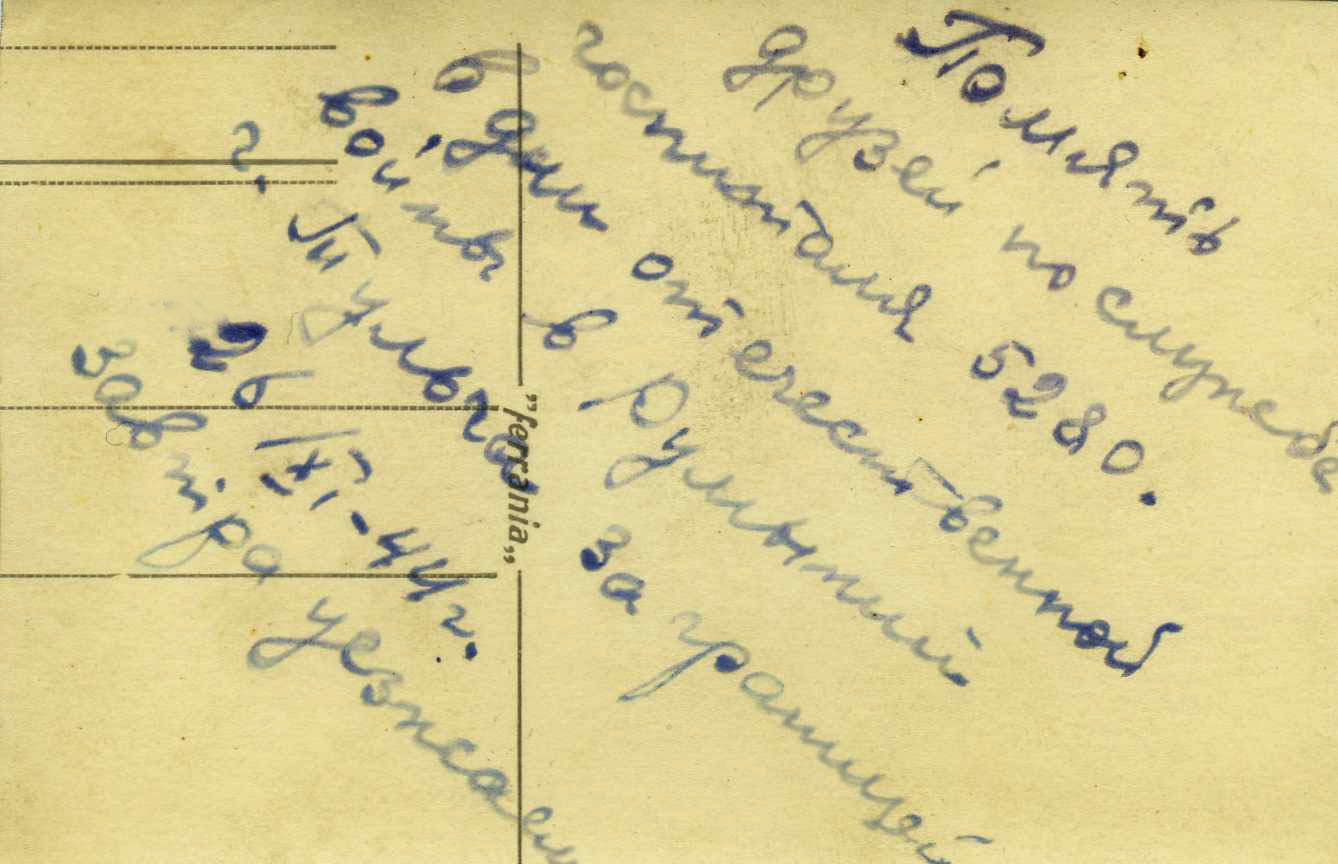 Помять
друзей по служба
госпиталя 5280.
в дни отечественной
войны в Румыний
за границей
г. Тульча
26/XI-44 г.
завтра уезжаем
"ferrania"